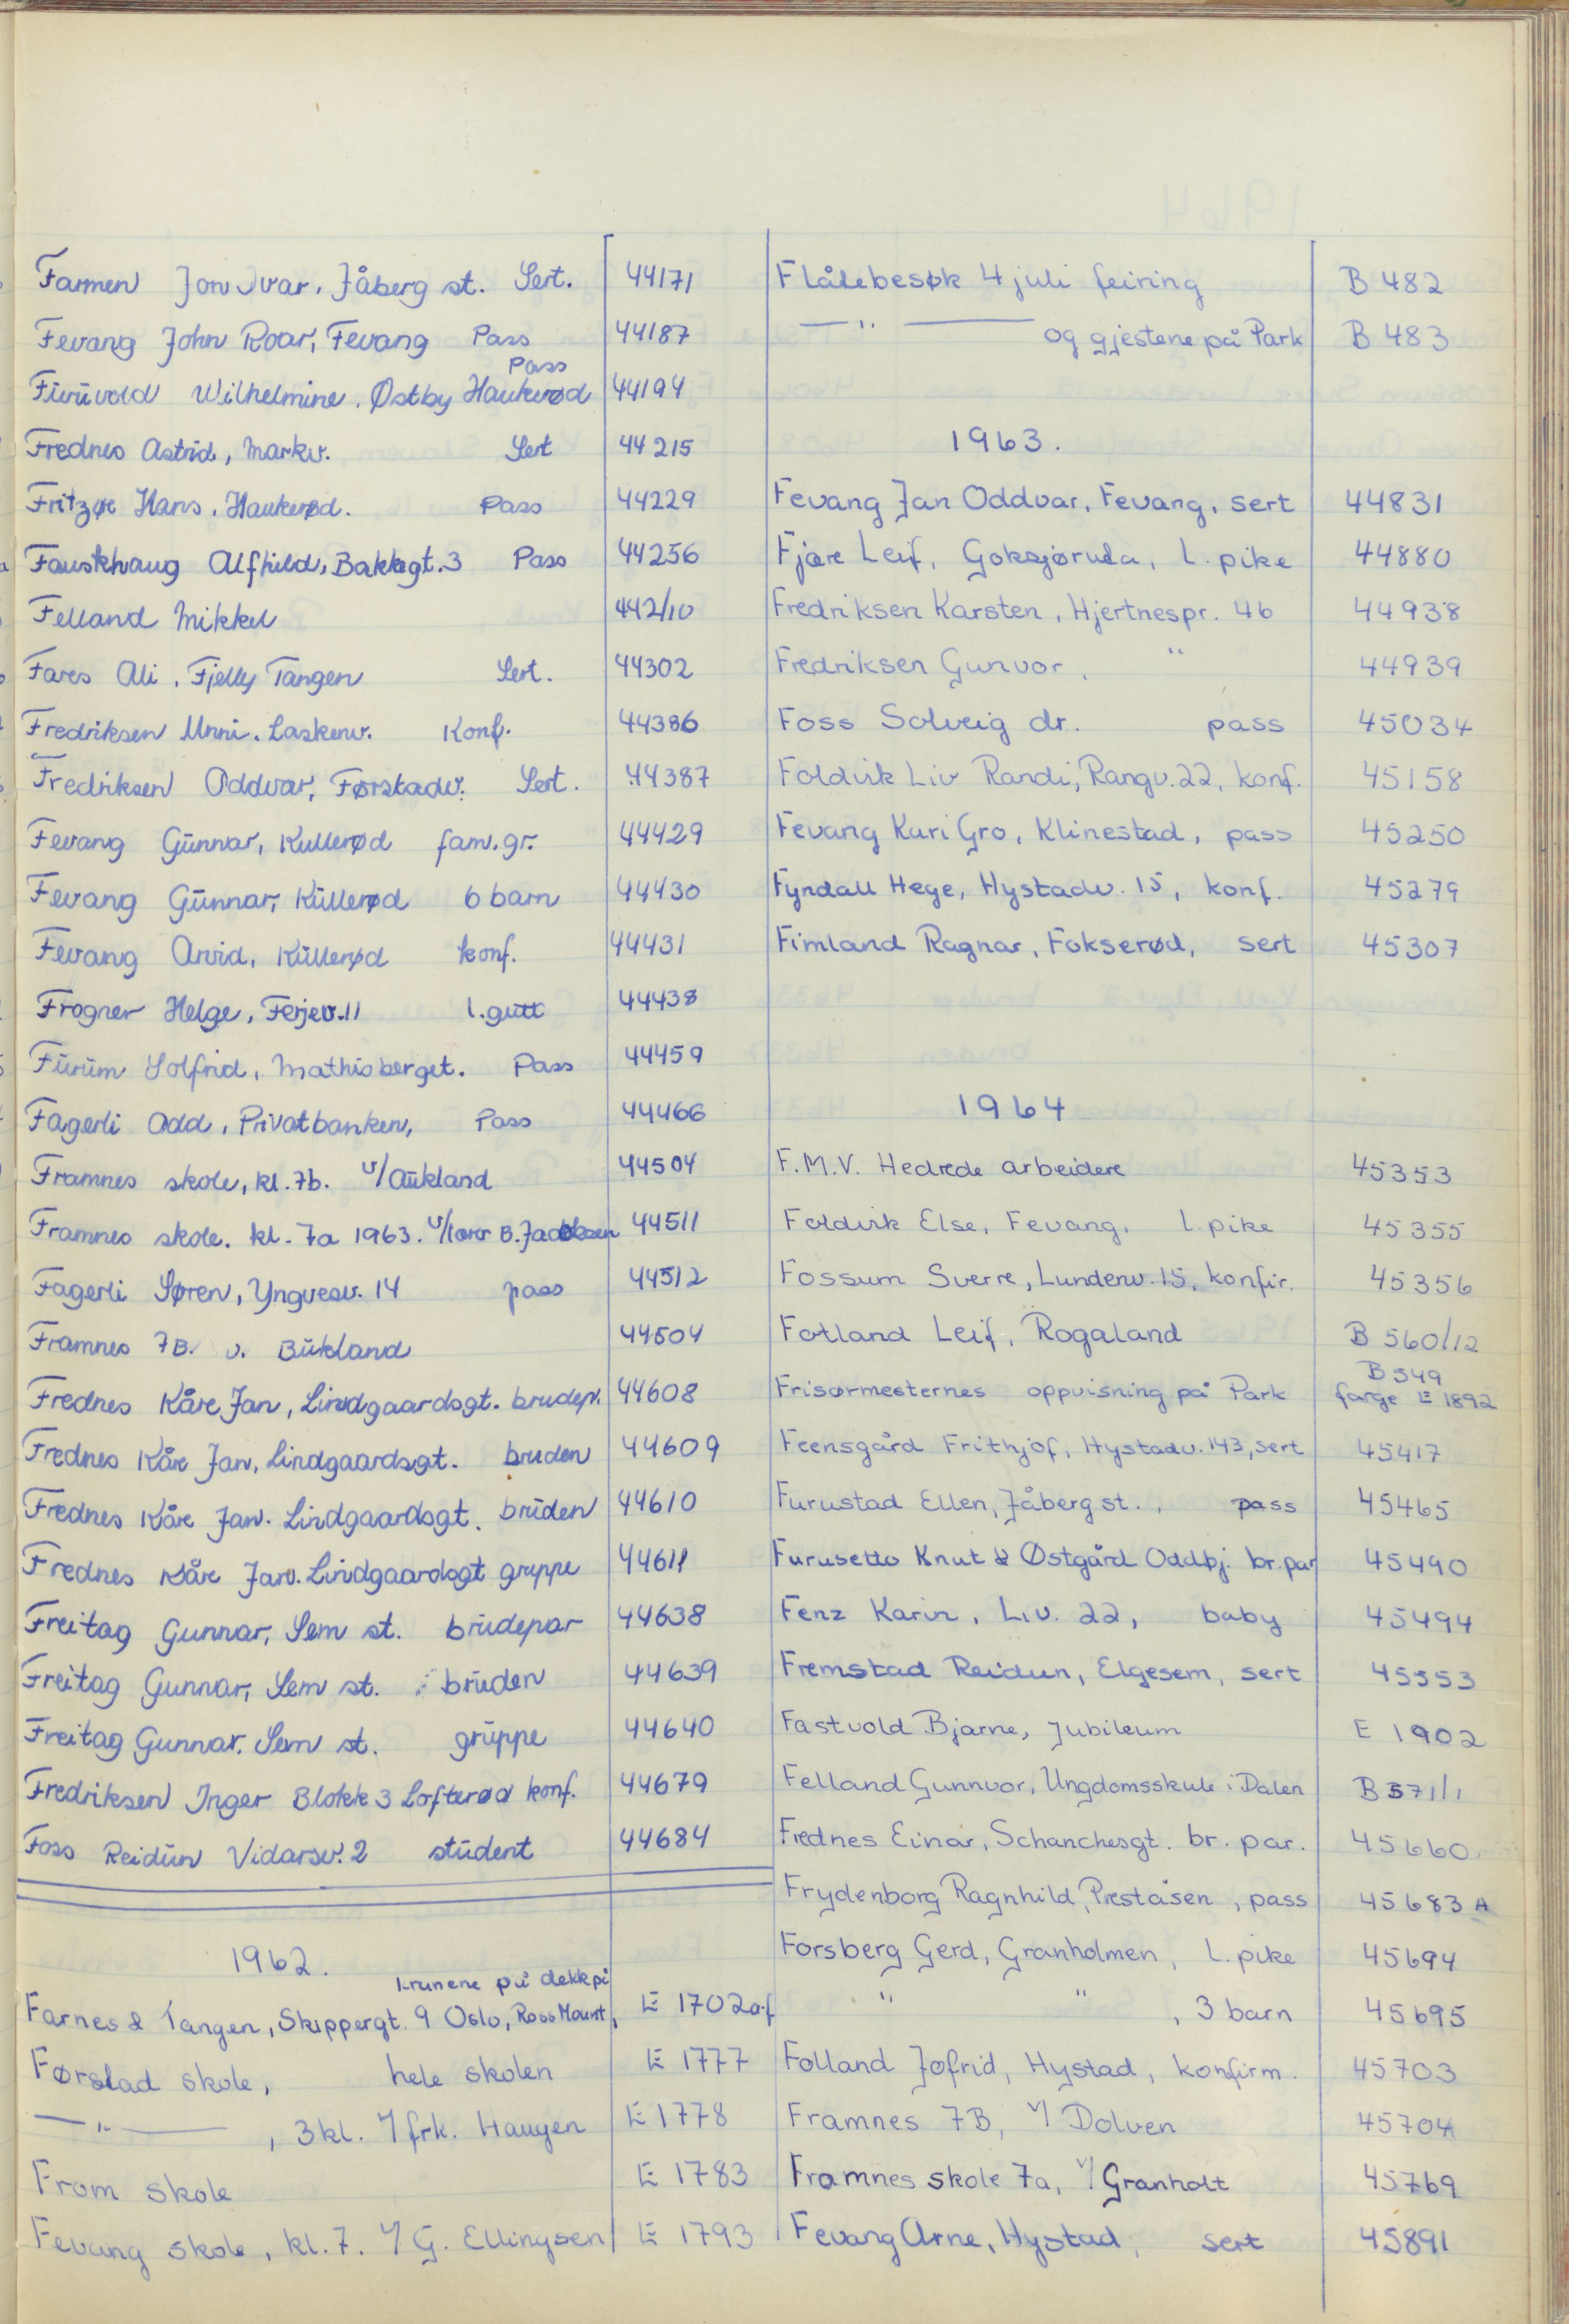 Farmen Jon Ivar, Jåberg st. Sert. 44171
Fevang John Roar, Fevang Pass 44187
Pass
Furuvold Wilhelmine. Østby Haukerød 44194
Frednes Astrid, Markv. Sert 44215
Fritzøe Hans. Haukerød. Pass 44229
Fauskhaug Alfhild, Bakkegt. 3 Pass 44256
Felland Mikkel 442/10
Fares Ali. Fjelly Tangen Sert. 44302
Fredriksen Unni. Laskenv. Konf. 44386
Fredriksen Oddvar, Førstadv. Sert. 44387
Fevang Gunnar, Kullerød fam.gr. 44429
Fevang Gunnar, Kullerød 6 barn 44430
Fevang Arvid, Kullerød konf. 44431
Frogner Helge, Ferjev. 11 l.gutt 44438
Furum Solfrid, Mathisberget. Pass 44459
Fagerli Odd, Privatbanken, Pass 44466
Framnes skole, kl. 7b. v/Aukland 44504
Framnes skole. kl. 7a 1963. v/ B. Jacobsen 44511
Fagerli Søren, Yngvesv. 14 pass 44512
Framnes 7B. v. Bukland 44504
Frednes Kåre Jan, Lindgaardsgt. brudep. 44608
Frednes Kåre Jan, Lindgaardsgt. bruden 44609
Frednes Kåre Jan. Lindgaardsgt. bruden 44610
Frednes Kåre Jan. Lindgaardsgt gruppe 44611
Freitag Gunnar, Sem st. brudepar 44638
Freitag Gunnar, Sem st. bruden 44639
Freitag Gunnar. Sem st. gruppe 44640
Fredriksen Inger Blokk 3 Lofterød konf. 44679
Foss Reidun Vidarsv. 2 student 44684
1962.
på dekk på
Farnes & Tangen, Skippergt. 9 Oslo, Ross Mount, E 1702 a-f
Førstad skole, hele skolen E 1777
—"— , 3 kl. v/ frk. Haugen E 1778
Fram skole E 1783
Fevang skole, kl. 7. v/ G. Ellingsen E 1793
Flåtebesøk 4 juli feiring B 482
—"— og gjestene på Park B 483
1963.
Fevang Jan Oddvar, Fevang, sert 44831
Fjære Leif, Goksjøruta, l. pike 44880
Fredriksen Karsten, Hjertnespr. 4b 44938
Fredriksen Gunvor, " 44939
Foss Solveig dr. pass 45034
Foldvik Liv Randi, Rangv. 22, konf. 45158
Fevang Kari Gro, Klinestad, pass 45250
Fyndall Hege, Hystadv. 15, konf. 45279
Fimland Ragnar, Fokserød, sert 45307
1964
F.M.V. Hedrede arbeidere 45353
Foldvik Else, Fevang, l. pike 45355
Fossum Sverre, Lundenv. 15, konfir. 45356
Fotland Leif, Rogaland B 560/12
B 549
Frisørmesternes oppvisning på Park farge E 1892
Feensgård Frithjof, Hystadv. 143, sert 45417
Furustad Ellen, Jåberg st., pass 45465
Furusetto Knut & Østgård Oddbj. br.par 45490
Fenz Karin, Liv. 22, baby 45494
Fremstad Reidun, Elgesem, sert 45553
Fastvold Bjarne, Jubileum E 1902
Felland Gunnvor, Ungdomsskule i Dalen B 571/1
Frednes Einar, Schanchesgt. br. par. 45660
Frydenborg Ragnhild, Preståsen, pass 45683 A
Forsberg Gerd, Granholmen, l. pike 45694
" " , 3 barn 45695
Folland Jofrid, Hystad, konfirm. 45703
Framnes 7B, v/ Dolven 45704
Framnes skole 7a, v/ Granholt 45769
Fevang Arne, Hystad, sert 45891